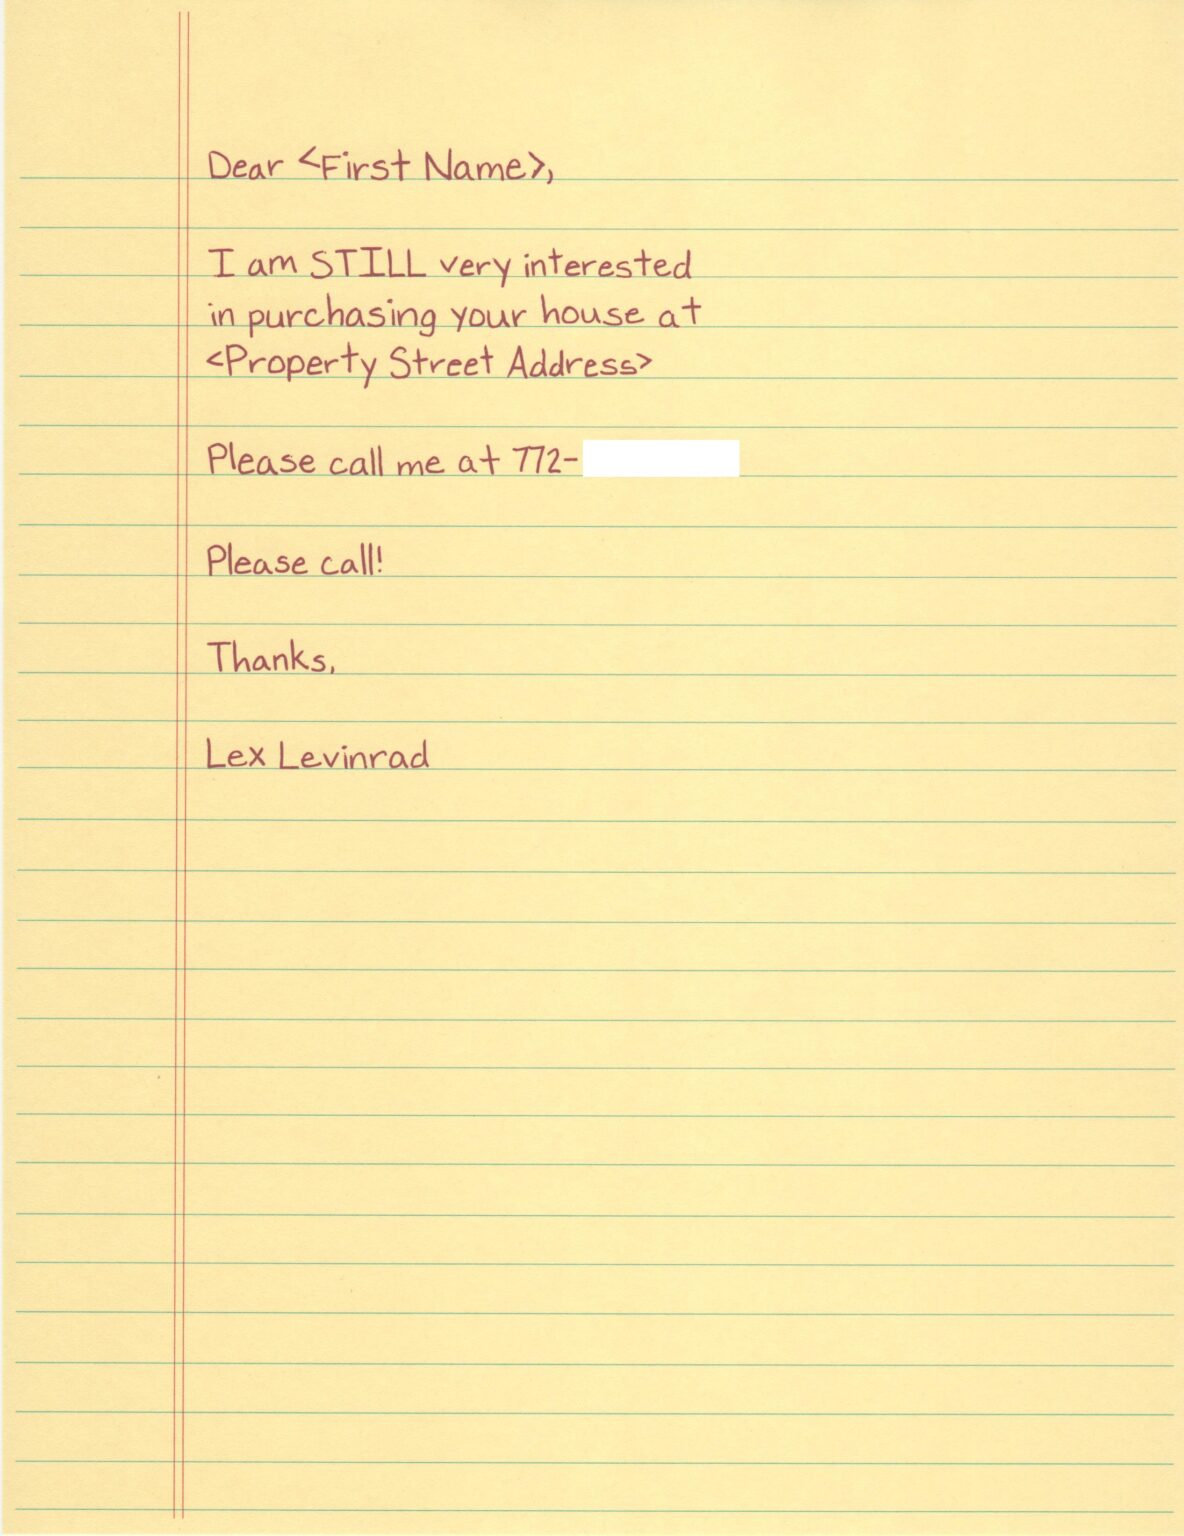 Dear <First Name>,
I am STILL very interested
in purchasing your house at
<Property Street Address>
Please call me at 772-
Please call!
Thanks,
Lex Levinrad